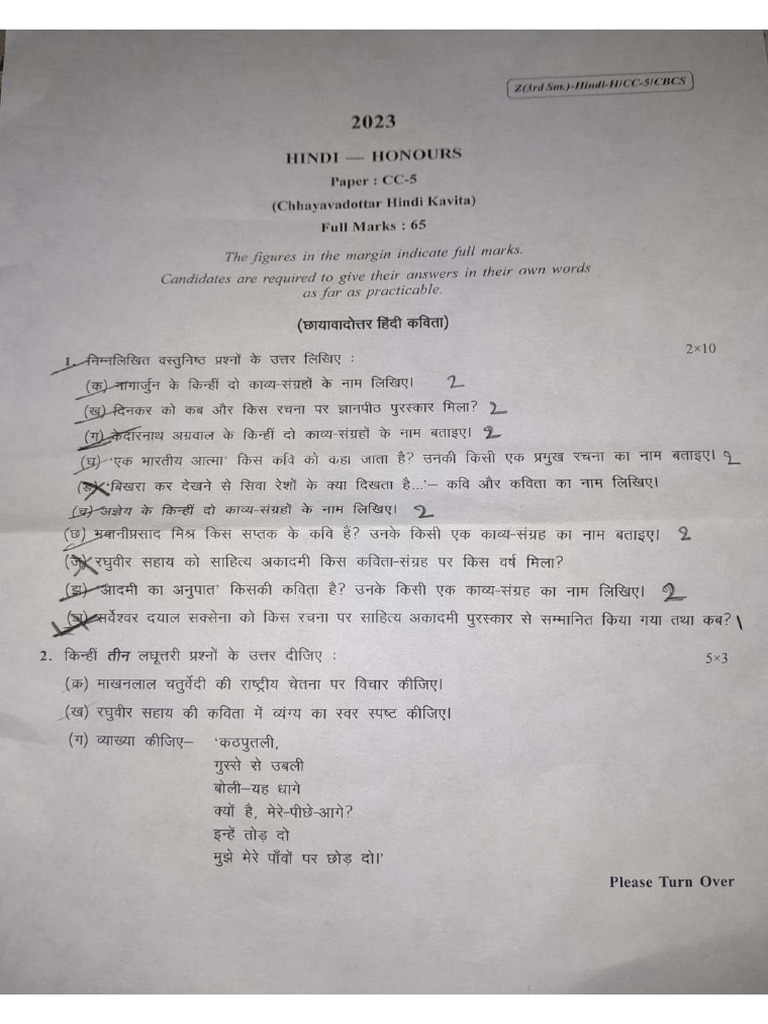 Z(3rd Sm.)-Hindi-H/CC-5/CBCS
2023
HINDI — HONOURS
Paper : CC-5
(Chhayavadottar Hindi Kavita)
Full Marks : 65
The figures in the margin indicate full marks.
Candidates are required to give their answers in their own words
as far as practicable.
(छायावादोत्तर हिंदी कविता)
1. निम्नलिखित वस्तुनिष्ठ प्रश्नों के उत्तर लिखिए : 2×10
(क) नागार्जुन के किन्हीं दो काव्य-संग्रहों के नाम लिखिए। 2
(ख) दिनकर को कब और किस रचना पर ज्ञानपीठ पुरस्कार मिला? 2
(ग) केदारनाथ अग्रवाल के किन्हीं दो काव्य-संग्रहों के नाम बताइए। 2
(घ) ‘एक भारतीय आत्मा’ किस कवि को कहा जाता है? उनकी किसी एक प्रमुख रचना का नाम बताइए। 2
(ङ) ‘बिखरा कर देखने से सिवा रेशों के क्या दिखता है...’– कवि और कविता का नाम लिखिए।
(च) अज्ञेय के किन्हीं दो काव्य-संग्रहों के नाम लिखिए। 2
(छ) भवानीप्रसाद मिश्र किस सप्तक के कवि हैं? उनके किसी एक काव्य-संग्रह का नाम बताइए। 2
(ज) रघुवीर सहाय को साहित्य अकादमी किस कविता-संग्रह पर किस वर्ष मिला?
(झ) ‘आदमी का अनुपात’ किसकी कविता है? उनके किसी एक काव्य-संग्रह का नाम लिखिए। 2
(ञ) सर्वेश्वर दयाल सक्सेना को किस रचना पर साहित्य अकादमी पुरस्कार से सम्मानित किया गया तथा कब? 1
2. किन्हीं तीन लघूत्तरी प्रश्नों के उत्तर दीजिए : 5×3
(क) माखनलाल चतुर्वेदी की राष्ट्रीय चेतना पर विचार कीजिए।
(ख) रघुवीर सहाय की कविता में व्यंग्य का स्वर स्पष्ट कीजिए।
(ग) व्याख्या कीजिए– ‘कठपुतली,
गुस्से से उबली
बोली–यह धागे
क्यों है, मेरे-पीछे-आगे?
इन्हें तोड़ दो
मुझे मेरे पाँवों पर छोड़ दो।’
Please Turn Over